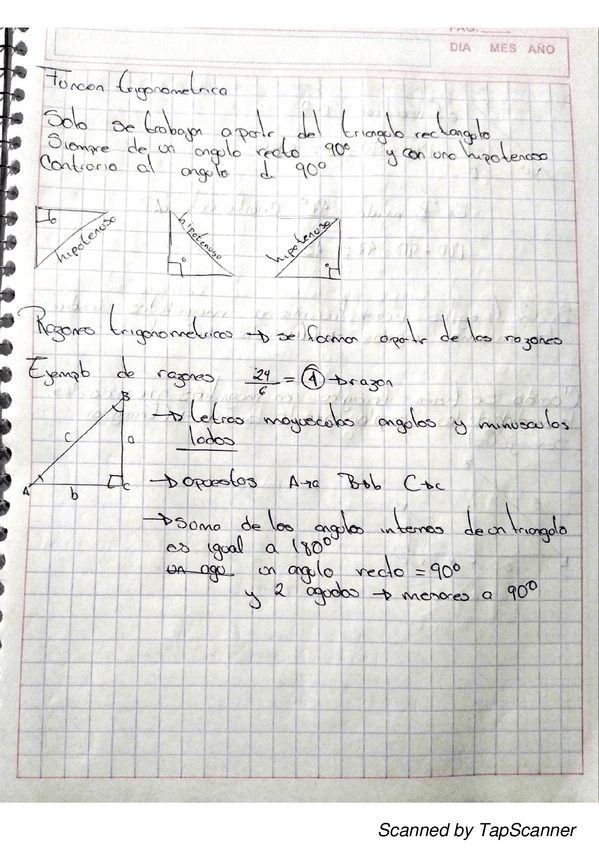 PAG.
DIA MES AÑO
Funcion trigonometrica
Solo se trabajan apartir del triangulo rectangulo
Siempre de un angulo recto 90° y con una hipotenosa
Contrario al angulo d 90°
hipotenoso
hipotenoso
hipotenoso
Razones trigonometricas → se forman apartir de las razones
Ejemplo de razones 24/6 = 4 → razon
B
→ Letras mayusculas angulos y minusculas
c a
lados
A b C
→ opuestos A→a B→b C→c
→ Suma de los angulos internos de un triangulo
es igual a 180°
un agu un angulo recto = 90°
y 2 agudos → menores a 90°
Scanned by TapScanner